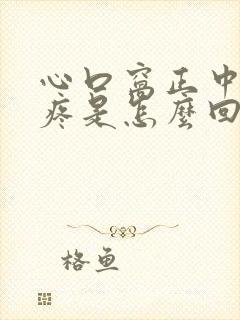 心口窝正中
疼是怎麼回
格鱼